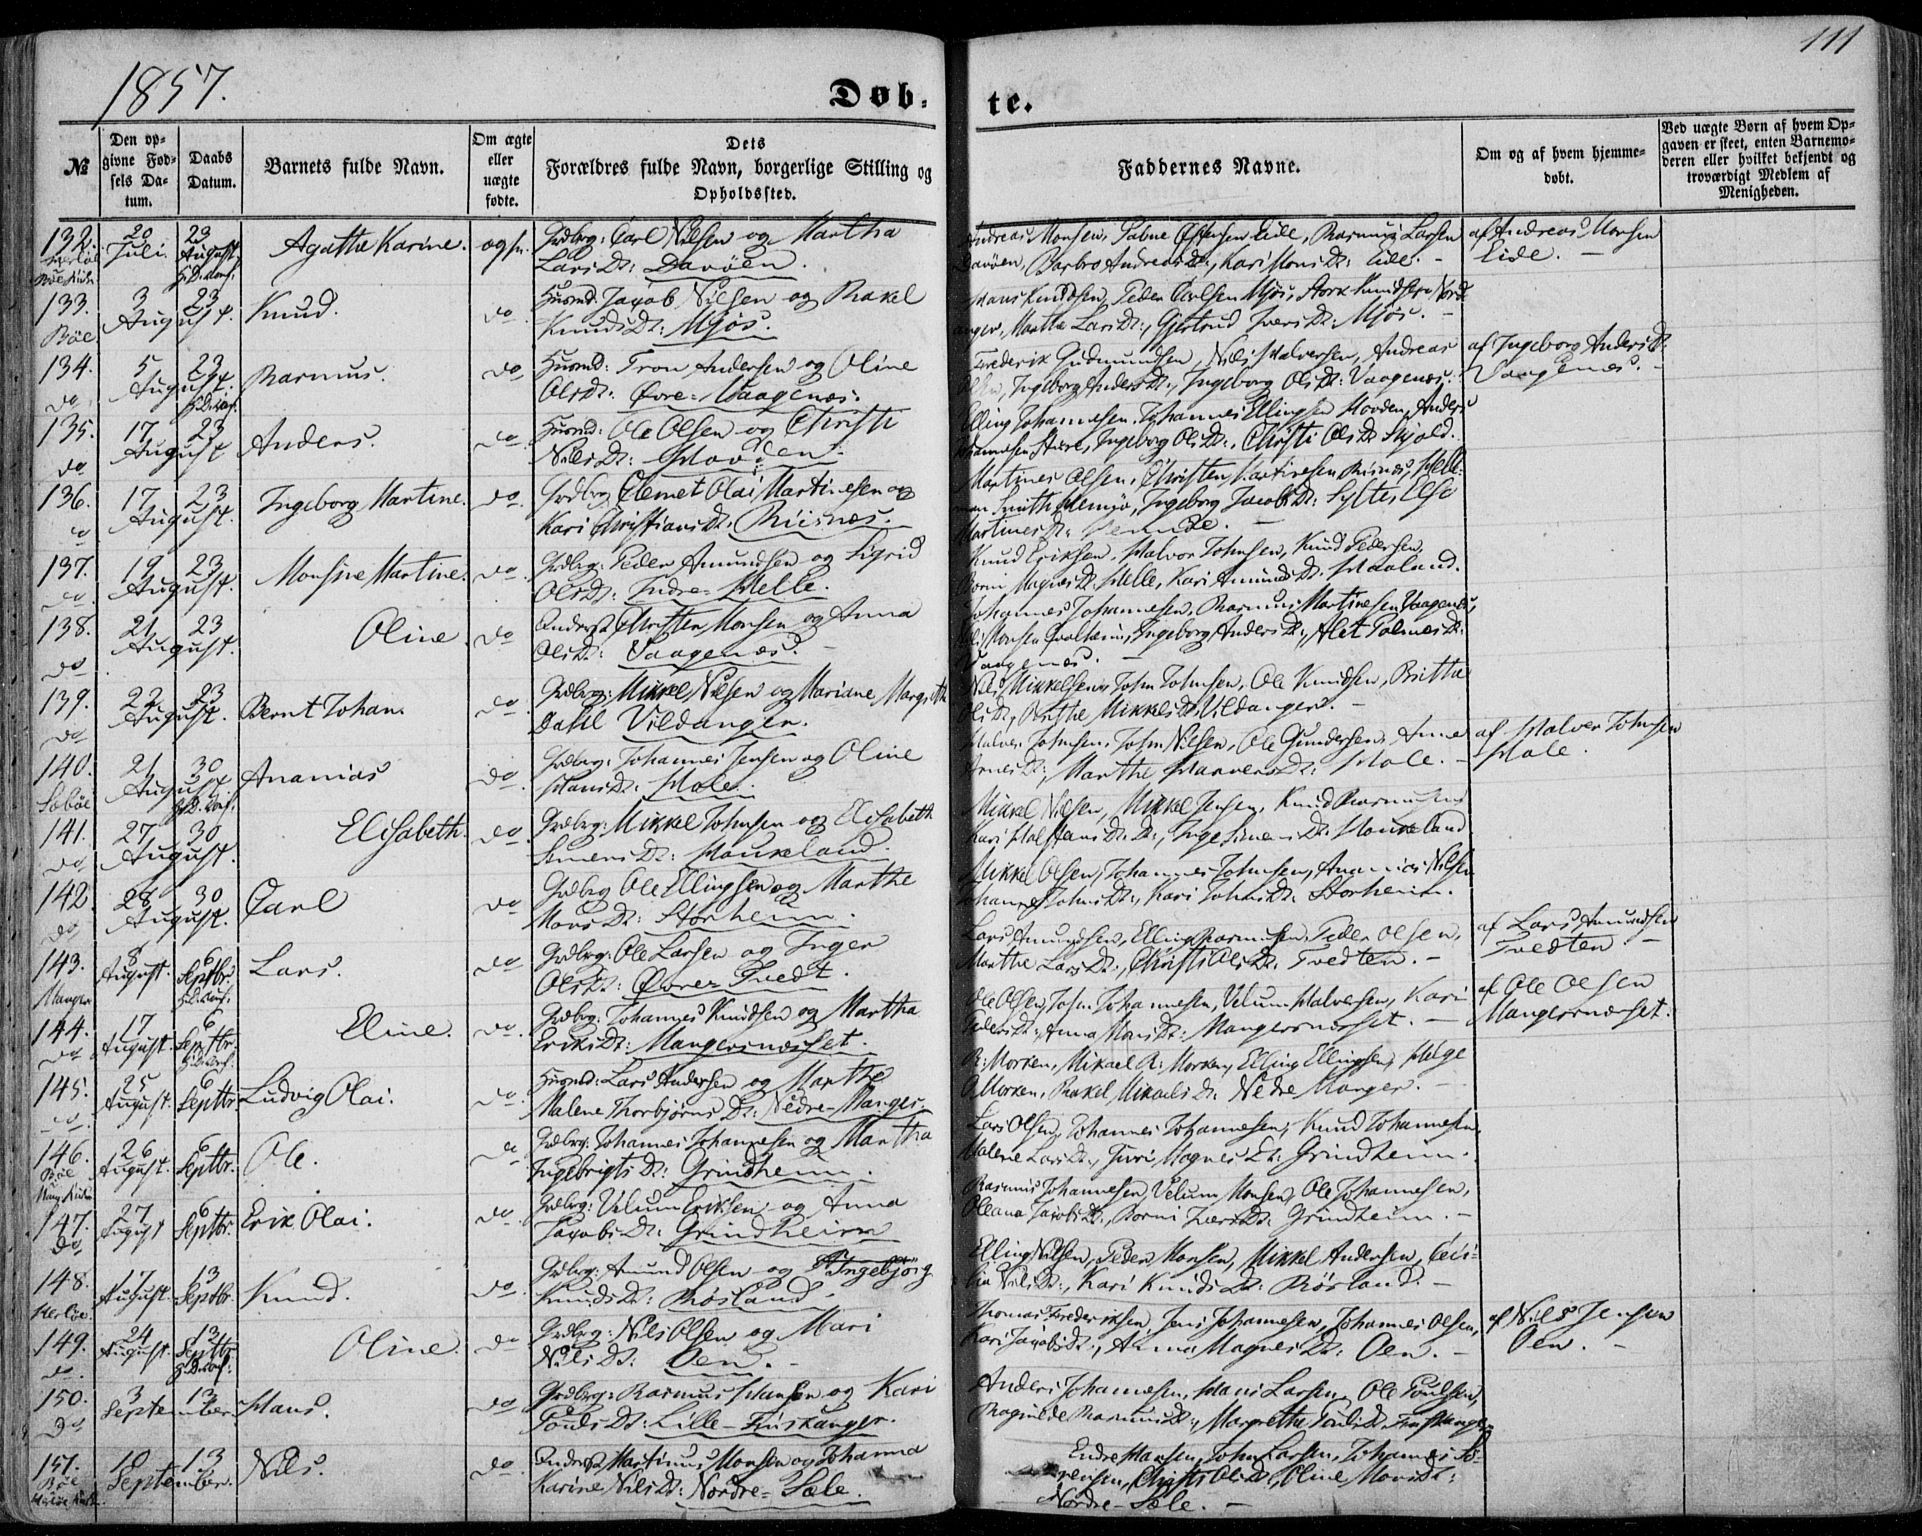 111
1857.
Døb-
te.
№
Den op-
givne Fød-
sels Da-
tum.
Daabs
Datum.
Barnets fulde Navn.
Om ægte
eller
uægte
fødte.
Dets
Forældres fulde Navn, borgerlige Stilling og
Opholdssted.
Faddernes Navne.
Om og af hvem hjemme-
døbt.
Ved uægte Børn af hvem Op-
gaven er skeet, enten Barnemo-
deren eller hvilket bekjendt og
troværdigt Medlem af
Menigheden.
132. 20 Juli. 23 August. Agathe Karine. Grdbrg: Carl Nilsen og Martha
Lars Dt: Davøen.
Andreas Monsen, Eide, Rasmus Larsen
Davøen, Barbro Andreas Dt:, Kari Mons Dt: Eide. –
af Andreas Monsen
Eide. –
133. Bøe. 3 August. 23 Knud. do Husmd: Jacob Nilsen og Rakel
Knuds Dt: Mjøs.
Hans Knudsen, Peder Carlsen Mjøs, Knudsen Nord-
anger, Martha Lars Dt:, Gjertrud Ivers Dt: Mjøs. –
134. do 5 August. 23 Rasmus. do Husmd: Tron Andersen og Oline
Ols Dt: Øvre-Vaagenæs.
Frederik Gudmundsen, Nils Halversen, Andreas
Olsen, Ingeborg Anders Dt:, Ingeborg Ols Dt: Vaagenæs.
af Ingeborg Anders Dt:
Vaagenæs. –
135. do 17 August 23 Anders. do Husmd: Ole Olsen og Christi
Nils Dt: Hovden.
Elling Johannesen, Johannes Ellingsen Hovden, Anders
Ingeborg Ols Dt:, Christi Ols Dt: Skjold.
136. do 17 August. 23 Ingeborg Martine. do. Grdbrg Clemet Olai Martinesen og
Kari Christians Dt: Riisnæs.
Martines Olsen, Christen Martinesen Riisnæs,
Ingeborg Jacobs Dt: Sylte, Else
Martines Dt:
137. do. 19 August. 23 Monsine Martine. do. Grdbrg: Peder Amundsen og Sigrid
Ols Dt: Indre-Helle.
Knud Eriksen, Halvor Johnsen, Knud Pedersen,
Borni Magnes Dt: Helle, Kari Amunds Dt: Haaland.
138. do 21 August. 23 Oline. do Christen Monsen og Anna
Ols Dt: Vaagenæs. –
Johannes Johannesen, Rasmus Martinesen Vaagenæs,
Nils Monsen Ingeborg Anders Dt:, Alet
Vaagenæs. –
139. do 22 August. 23 Bernt Johan. do Grdbrg: Mikkel Nilsen og Mariane Margrethe
Dahl Vildanger.
Nils Mikkelsen, John Johnsen, Ole Knudsen, Britha
Ols Dt:, Brithe Mikkels Dt: Vildanger. –
140. Sæbøe 21 August. 30 Ananias do. Grdbrg: Johannes Jensen og Oline
Hans Dt: Hole.
Halver Johnsen, John Nilsen, Ole Gundersen, Anne
Arnes Dt:, Marthe Halvers Dt: Hole. –
af Halver Johnsen
Hole.
141. do. 27 August. 30 Elisabeth. do. Grdbrg: Mikkel Johnsen og Elisabeth
Simens Dt: Haukeland.
Mikkel Nilsen, Mikkel Jensen, Knud Rasmusen,
Kari Dt:, Inge Simens Dt: Haukeland
142. do 28 August. 30 Carl do Grdbrg Ole Ellingsen og Marthe
Mons Dt: Storheim.
Mikkel Olsen, Johannes Johnsen, Ananias Nilsen
Johanne Johns Dt:, Kari Johns Dt: Storheim.
143. Manger 8 August. 6 Septbr. Lars. do Grdbrg: Ole Larsen og Inger
Ols Dt: Øvre Tvedt.
Lars Amundsen, Elling Rasmusen, Peder Olsen,
Marthe Lars Dt:, Christi Ols Dt: Tvedten. –
af Lars Amundsen
Tvedten –
144. do 17 August. 6 Septbr. Eline. do. Grdbrg: Johannes Knudsen og Martha
Eriks Dt: Mangersnæsset.
Ole Olsen, John Johannesen, Velum Halvorsen, Kari
Peders Dt:, Anna Mons Dt: Mangersnæsset. –
af Ole Olsen
Mangersnæsset.
145. do. 25 August. 6 Septbr Ludvig Olai. do. Husmd: Lars Andersen og Marthe
Malene Thorbjørns Dt: Nedre-Manger.
R: Morken, Mikael R: Morken, Elling Ellingsen, Helge
Morken, Rakel Mikaels Dt: Nedre Manger. –
146. Bøe 26 August. 6 Septbr. Ole. do Grdbrg: Johannes Johannesen og Martha
Ingebrigts Dt: Grindheim.
Lars Olsen, Johannes Johannesen, Knud Johannesen,
Malene Lars Dt:, Magnes Dt: Grindheim.
147. do 27 August 6 Septbr. Erik Olai. do Grdbrg: Velum Eriksen og Anna
Jacobs Dt: Grindheim
Rasmus Johannesen, Velum Monsen, Ole Johannesen,
Oleana Jacobs Dt:, Borni Ivers Dt: Grindheim. –
148. Herløe. 17 August. 13 Septbr. Knud. do. Grdbrg: Amund Olsen og Ingebjørg
Knuds Dt: Røsland.
Elling Nilsen, Peder Monsen, Mikkel Andersen, Ceci-
lia Nils Dt:, Kari Knuds Dt: Røsland. –
149. do. 24 August. 13 Septbr Oline. do Grdbrg: Nils Olsen og Mari
Nils Dt: Oen. –
Thomas Frederiksen, Jens Johannesen, Johannes Olsen,
Kari Jacobs Dt:, Anna Magnes Dt: Oen. –
af Nils Jensen
Oen. –
150. Do 3 September 13 Hans. do Grdbrg: Rasmus Hansen og Kari
Pouls Dt: Lille-Fuskanger.
Anders Johannesen, Hans Larsen, Ole Poulsen,
Ragnilde Rasmus Dt:, Margrethe Pouls Dt: Fuskanger
151. Bøe 10 September. 13 Nils. do. Martinus Monsen og Johanna
Karine Nils Dt: Nordre-Sæle.
Endre Hansen, John Larsen, Johannes Sø-
rensen, Christi Ols Dt:, Oline Mons Dt:
Nordre-Sæle. –